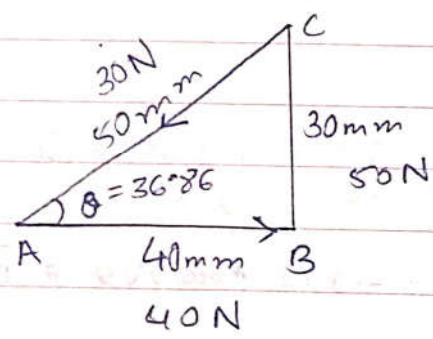 C
30N
50mm
30mm
50N
θ = 36.86
A
40mm
B
40N